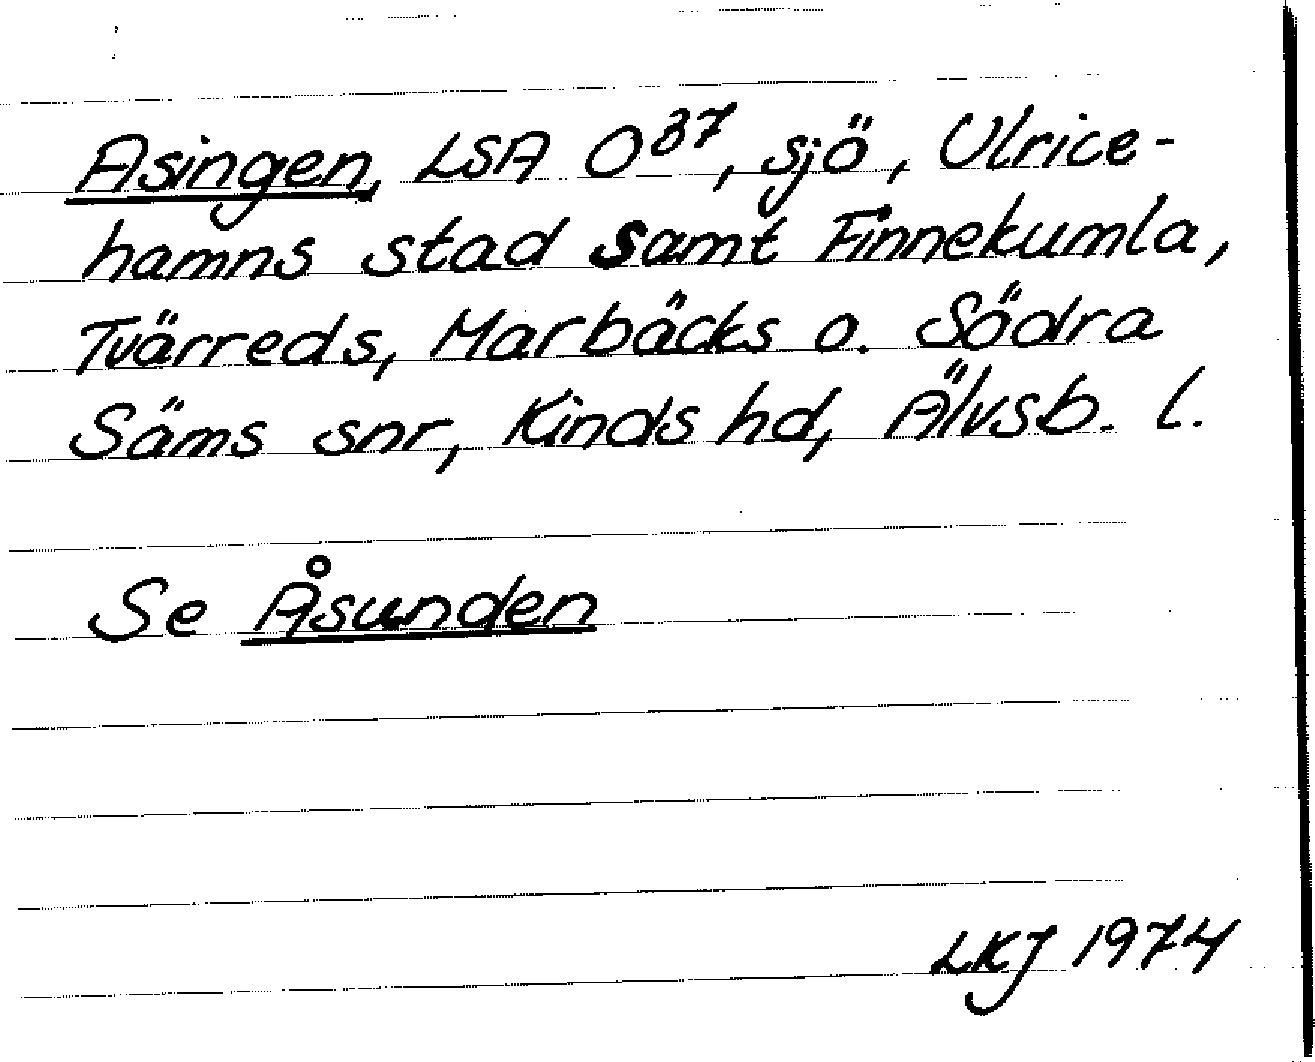 Asingen, LSA O37, sjö, Ulrice-
hamns stad samt Finnekumla,
Tvärreds, Marbäcks o. Södra
Säms snr, Kinds hd, Älvsb. l.
Se Åsunden
LKJ 1974